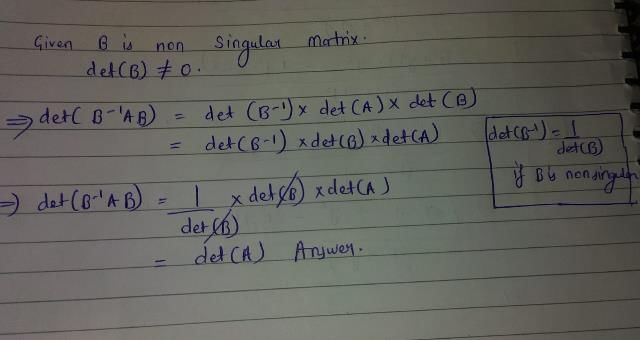 Given B is non singular matrix.
det(B) ≠ 0.
⇒ det( B⁻¹AB) = det (B⁻¹) × det(A) × det(B)
= det(B⁻¹) × det(B) × det(A)
det(B⁻¹) = 1/det(B)
if B is nonsingular
⇒ det(B⁻¹AB) = 1/det(B) × det(B) × det(A)
= det(A) Answer.